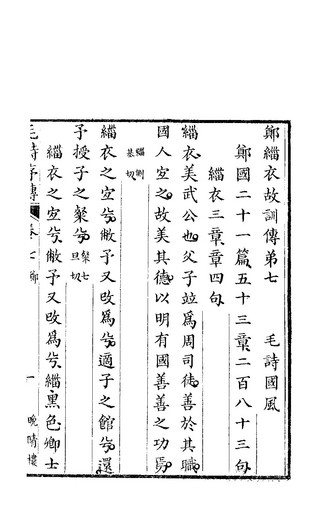 鄭緇衣故訓傳弟七　毛詩國風
鄭國二十一篇五十三章二百八十三句
緇衣三章章四句
緇衣美武公也父子竝爲周司徒善於其職
國人宐之故美其德以明有國善善之功焉
緇側
基切
緇衣之宐兮敝予又改爲兮適子之館兮還
予授子之粲兮粲七
旦切
緇衣之宐兮敝予又改爲兮緇黑色卿士
毛詩故傳 卷七 鄭 一 晩晴樓